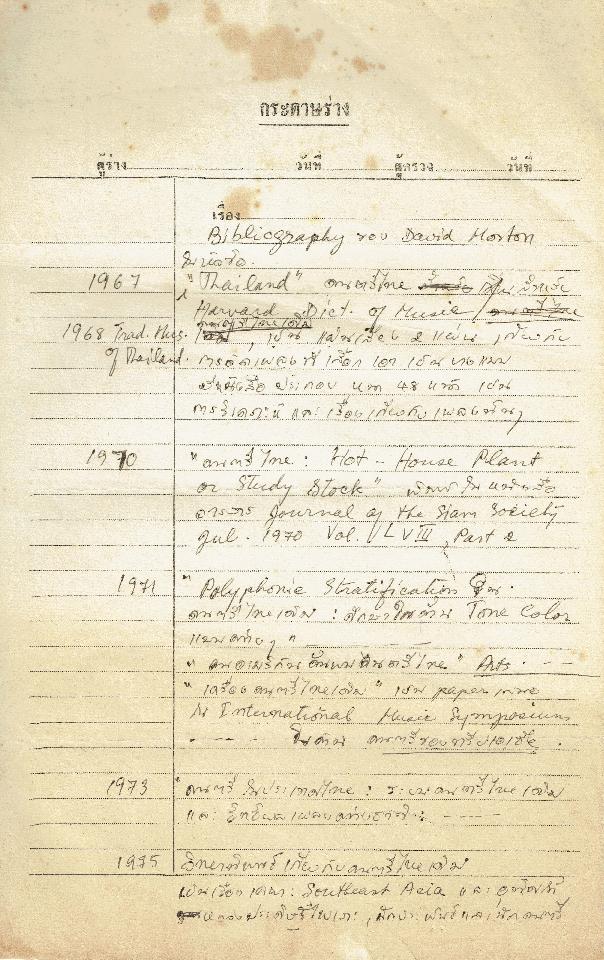 กระดาษร่าง
ผู้ร่าง วันที่ ผู้ตรวจ วันที่
เรื่อง
Bibliography ของ David Morton
ในหัวข้อ
1967 "Thailand" ดนตรีไทย
Harvard Dict. of Music
ดนตรีไทยเดิม
1968 Trad. Mus. เป็น แผ่นเสียง 2 แผ่น เกี่ยวกับ
of Thailand.
มีหนังสือ ประกอบ หนา 48 หน้า เป็น
การวิเคราะห์ และ เรื่องเกี่ยวกับ เพลงนั้นๆ
1970 "ดนตรีไทย : Hot - House Plant
or Study Stock" พิมพ์ ใน หนังสือ
วารสาร Journal of the Siam Society
Jul. 1970 Vol. LVIII, Part 2
1971 "Polyphonic Stratification ใน
ดนตรีไทยเดิม : ศึกษาในด้าน Tone Color
แบบต่างๆ "
ดนตรีไทย" Arts. - --
"เครื่องดนตรีไทยเดิม" เป็น paper เสนอ
ใน International Music Symposium
- - - - ในด้าน ดนตรีของทวีปเอเชีย .
1973 "ดนตรี ในประเทศไทย : ระบบดนตรีไทยเดิม
และ อิทธิพลเพลงต่างชาติ : - ---
1975 วิทยานิพนธ์ เกี่ยวกับดนตรีไทยเดิม
เป็นเรื่อง Southeast Asia และ
หลวงประดิษฐ์ไพเราะ, นักประพันธ์และนักดนตรี